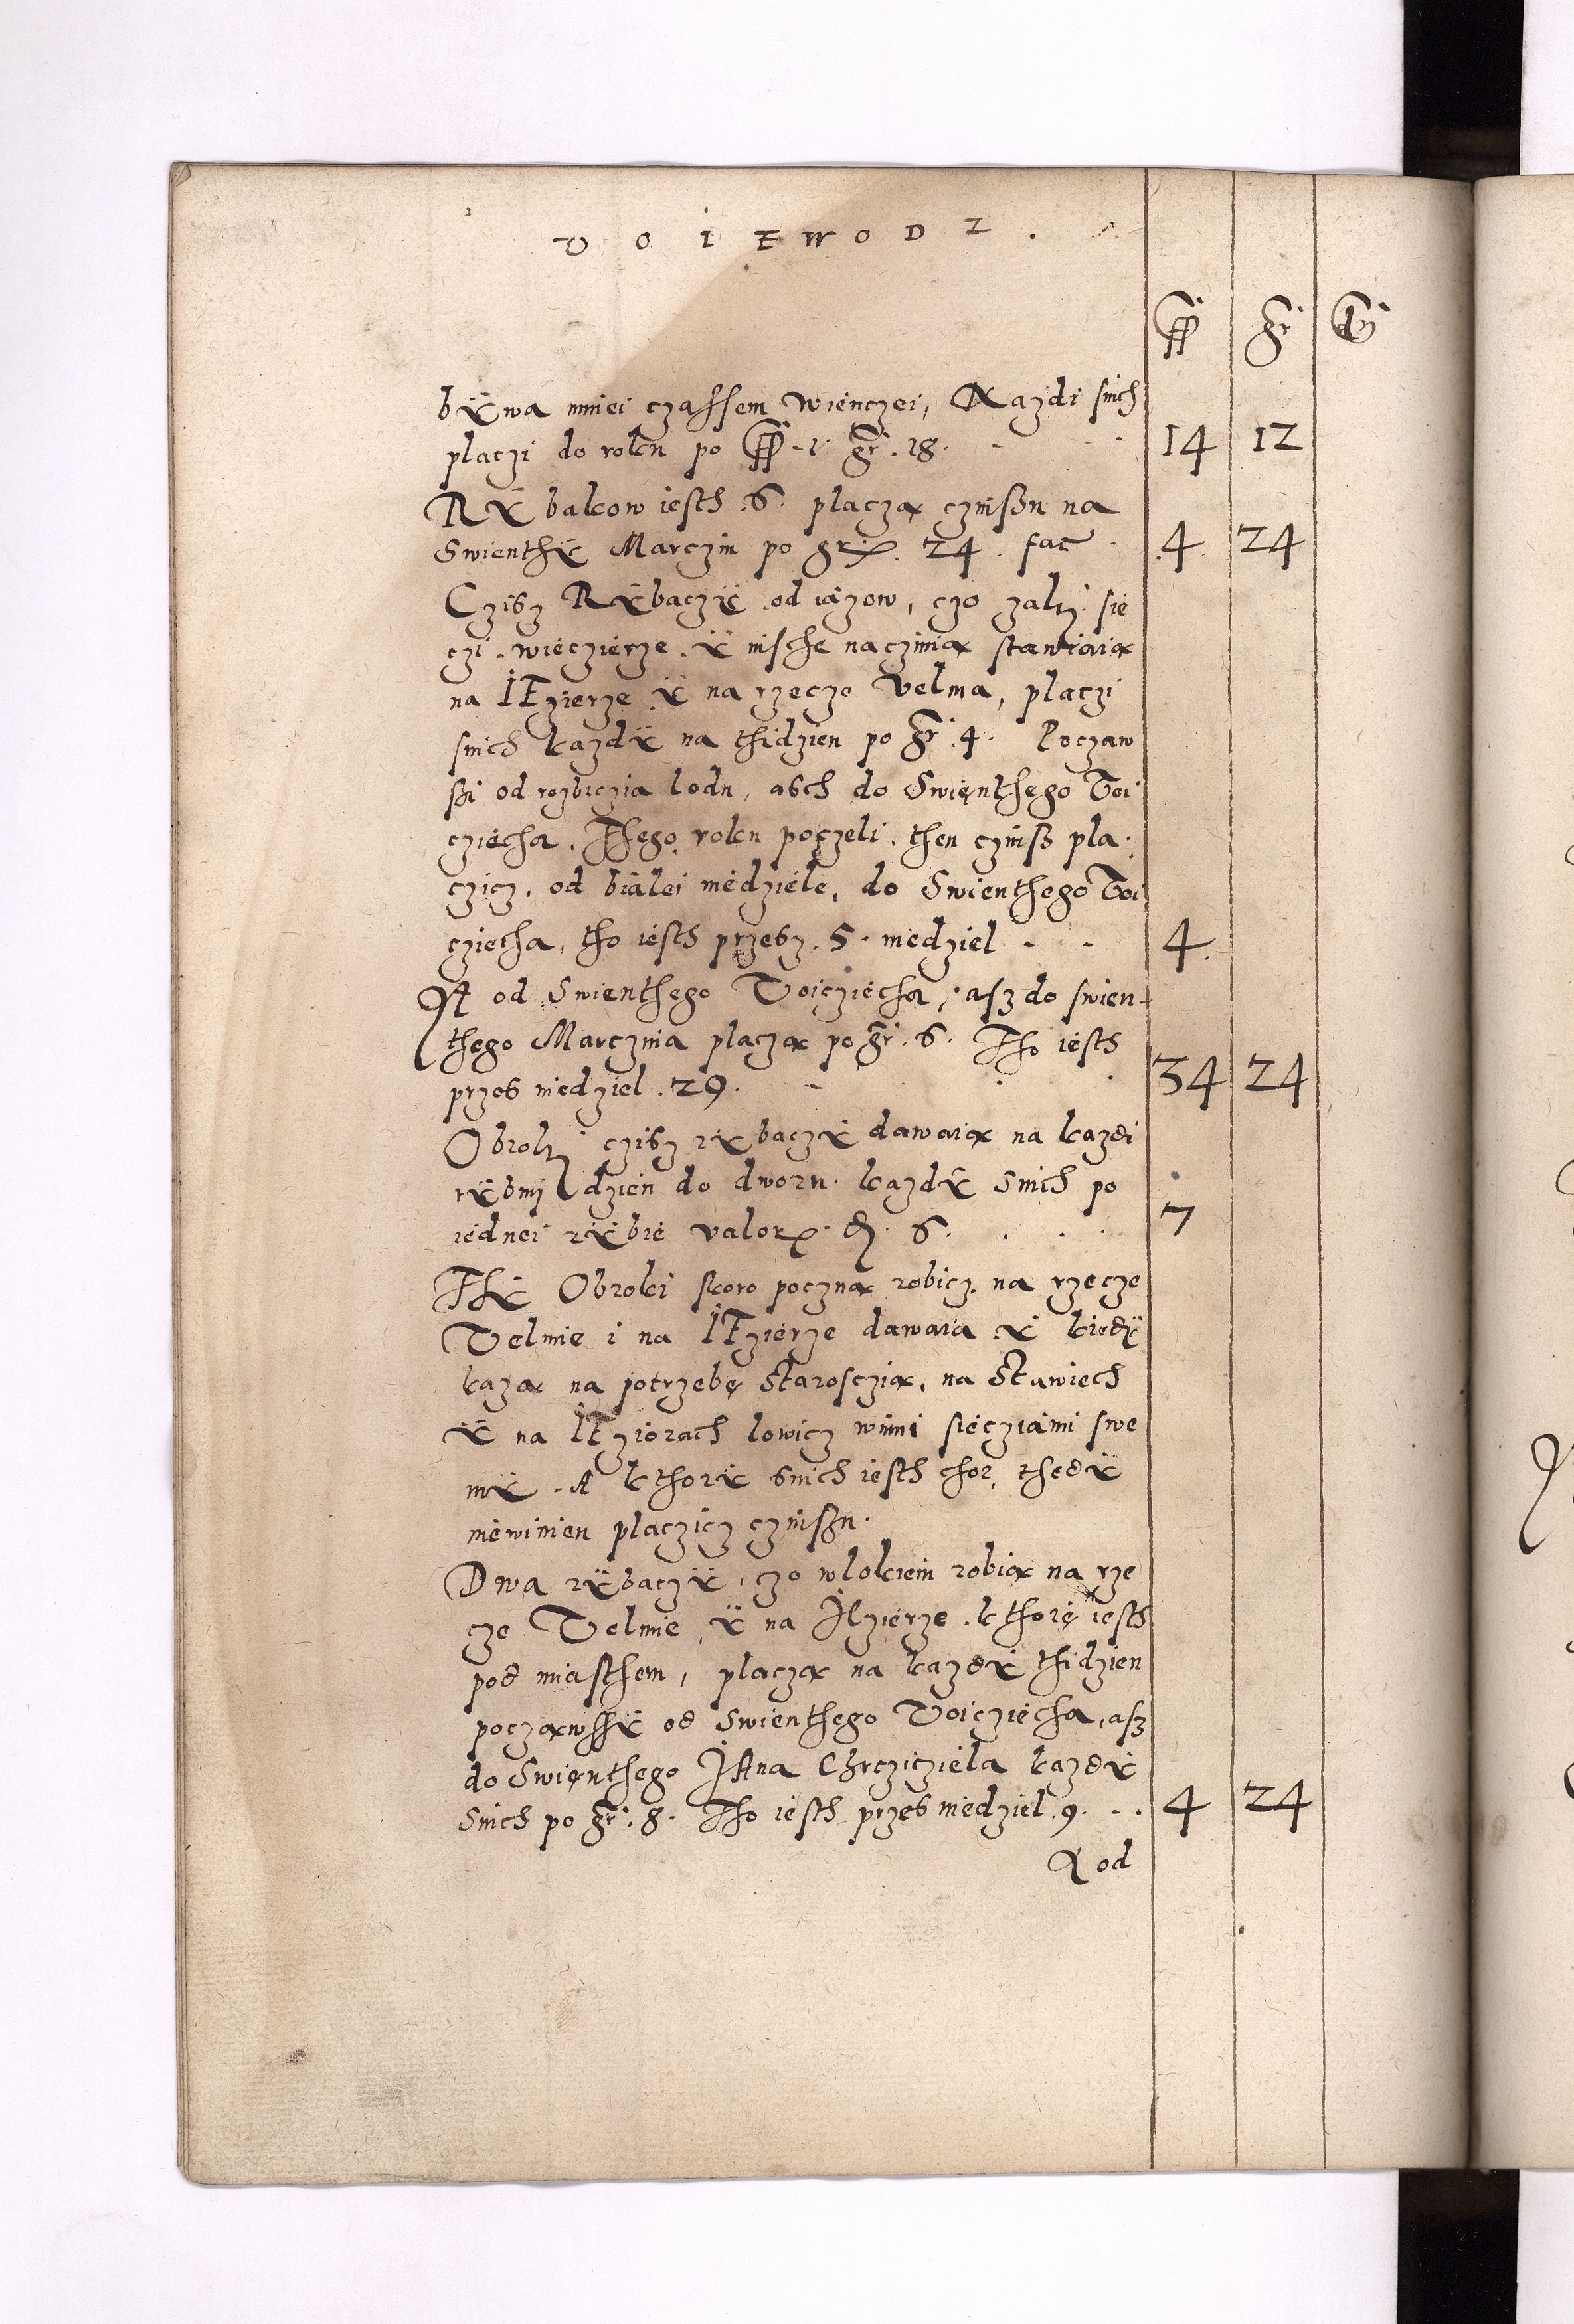 VOIEWODZ.
ff gr d
bÿwa mniei czassem wienczei, Kazdi snich
placzi do rolcu po ff 1 gr. 18. 14 12
Rÿbakow iesth .6. placzą czinssu na
Swienthÿ Marczin po gr. 24. fac 4 24
Czisz Rÿbaczÿ od iazow, czo zakÿ sie
czi. wieczierze. ÿ nische naczinia stawiaią
na IEzierze ÿ na rzecze Velma, placzi
snich kazdÿ na thidzien po gr .4. Poczaw
ssi od rozbiczia lodu, asch do Swięnthego Voi
cziecha. Thego roku poczeli. then czinss pla.
czicz. od bialei niedziele, do Swienthego Voi
cziecha, tho iesth przesz .5. niedziel 4.
A od Swienthego Voicziecha, asz do swien-
thego Marczina placzą po gr. 6. Tho iesth
przes niedziel .29. 34 24
Obrokÿ czisz rÿbaczÿ dawaią na kazdi
rÿbnÿ dzien do dworu. kazdÿ Snich po
iednei rÿbie valor. d. 6. 7
Thÿ Obroki skoro poczną robicz na rzecze
Velmie i na IEzierze dawaia ÿ kiedÿ
kazą na potrzebę Starosczią, na Stawiech
ÿ na IEziorach lowicz winni siecziami swe
mÿ. A kthorÿ snich iesth chor, thedÿ
niewinien placzicz czinssu.
Dwa rÿbaczÿ, czo wlokiem robią na rze
cze Velmie, ÿ na Iezierze. kthorę iesth
pod miasthem, placzą na kazdÿ thidzien
począwssÿ od Swienthego Voicziecha, asz
do Swięnthego IAna Chrzcicziela kazdÿ
Snich po gr. 8. Tho iesth przes niedziel .9. 4 24
A od